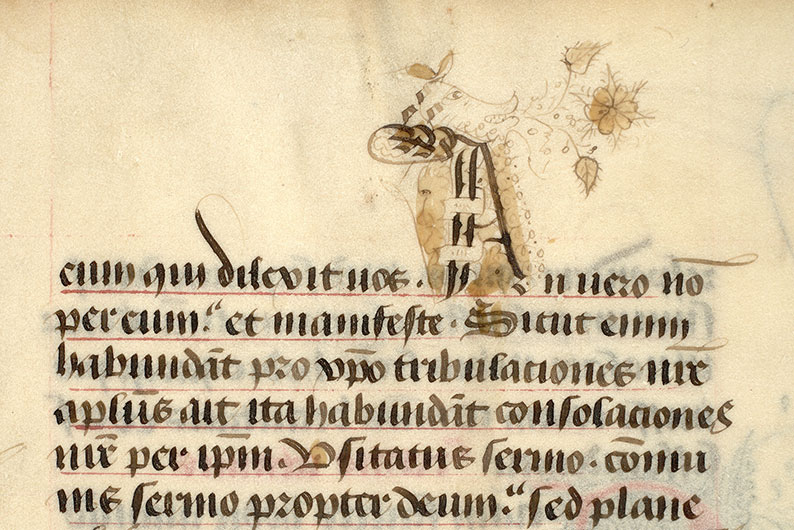 eum qui dilexit nos. An vero nō
per eum? et manifeste. Sicut enim
habundāt pro xpo tribulationes nr̄e
apl̄us ait ita habundāt consolationes
nr̄e per ip̄m. Usitatus sermo. cōmu
nis sermo propter deum? sed plane